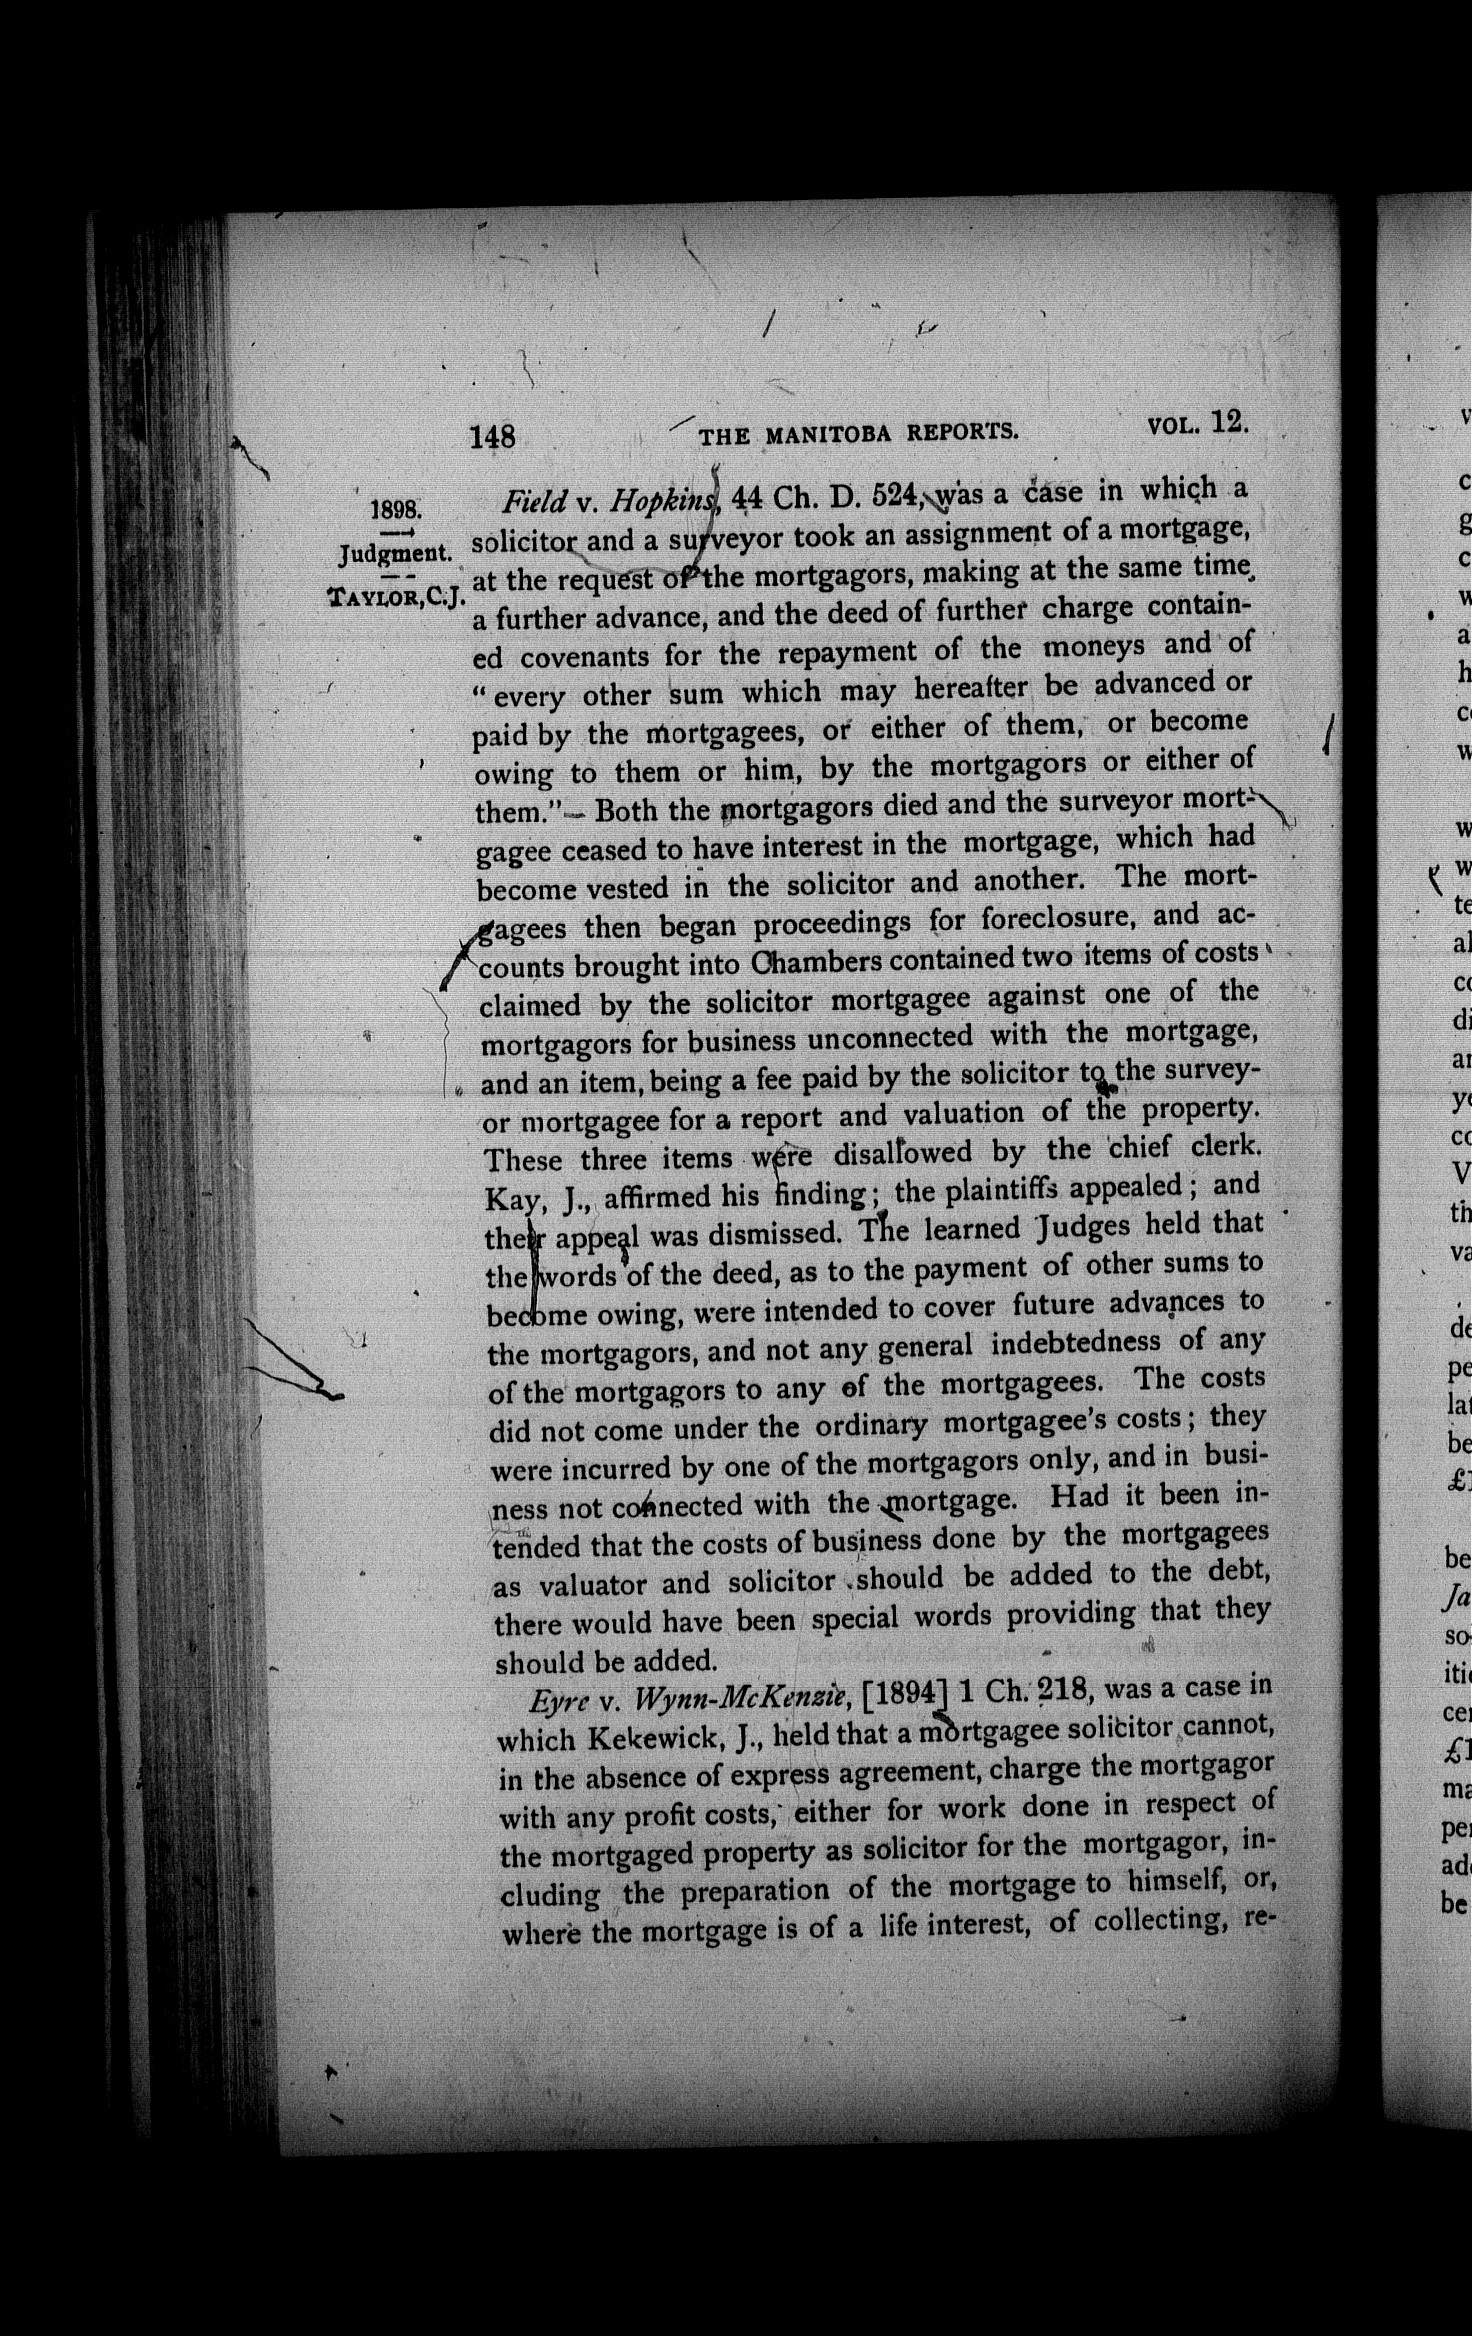 148 THE MANITOBA REPORTS. VOL. 12.
1898.
Judgment.
TAYLOR, C.J.
Field v. Hopkins, 44 Ch. D. 524, was a case in which a
solicitor and a surveyor took an assignment of a mortgage,
at the request of the mortgagors, making at the same time
a further advance, and the deed of further charge contain-
ed covenants for the repayment of the moneys and of
“every other sum which may hereafter be advanced or
paid by the mortgagees, or either of them, or become
owing to them or him, by the mortgagors or either of
them.”— Both the mortgagors died and the surveyor mort-
gagee ceased to have interest in the mortgage, which had
become vested in the solicitor and another. The mort-
gagees then began proceedings for foreclosure, and ac-
counts brought into Chambers contained two items of costs
claimed by the solicitor mortgagee against one of the
mortgagors for business unconnected with the mortgage,
and an item, being a fee paid by the solicitor to the survey-
or mortgagee for a report and valuation of the property.
These three items were disallowed by the chief clerk.
Kay, J., affirmed his finding; the plaintiffs appealed; and
their appeal was dismissed. The learned Judges held that
the words of the deed, as to the payment of other sums to
become owing, were intended to cover future advances to
the mortgagors, and not any general indebtedness of any
of the mortgagors to any of the mortgagees. The costs
did not come under the ordinary mortgagee's costs; they
were incurred by one of the mortgagors only, and in busi-
ness not connected with the mortgage. Had it been in-
tended that the costs of business done by the mortgagees
as valuator and solicitor should be added to the debt,
there would have been special words providing that they
should be added.
Eyre v. Wynn-McKenzie, [1894] 1 Ch. 218, was a case in
which Kekewick, J., held that a mortgagee solicitor cannot,
in the absence of express agreement, charge the mortgagor
with any profit costs, either for work done in respect of
the mortgaged property as solicitor for the mortgagor, in-
cluding the preparation of the mortgage to himself, or,
where the mortgage is of a life interest, of collecting, re-